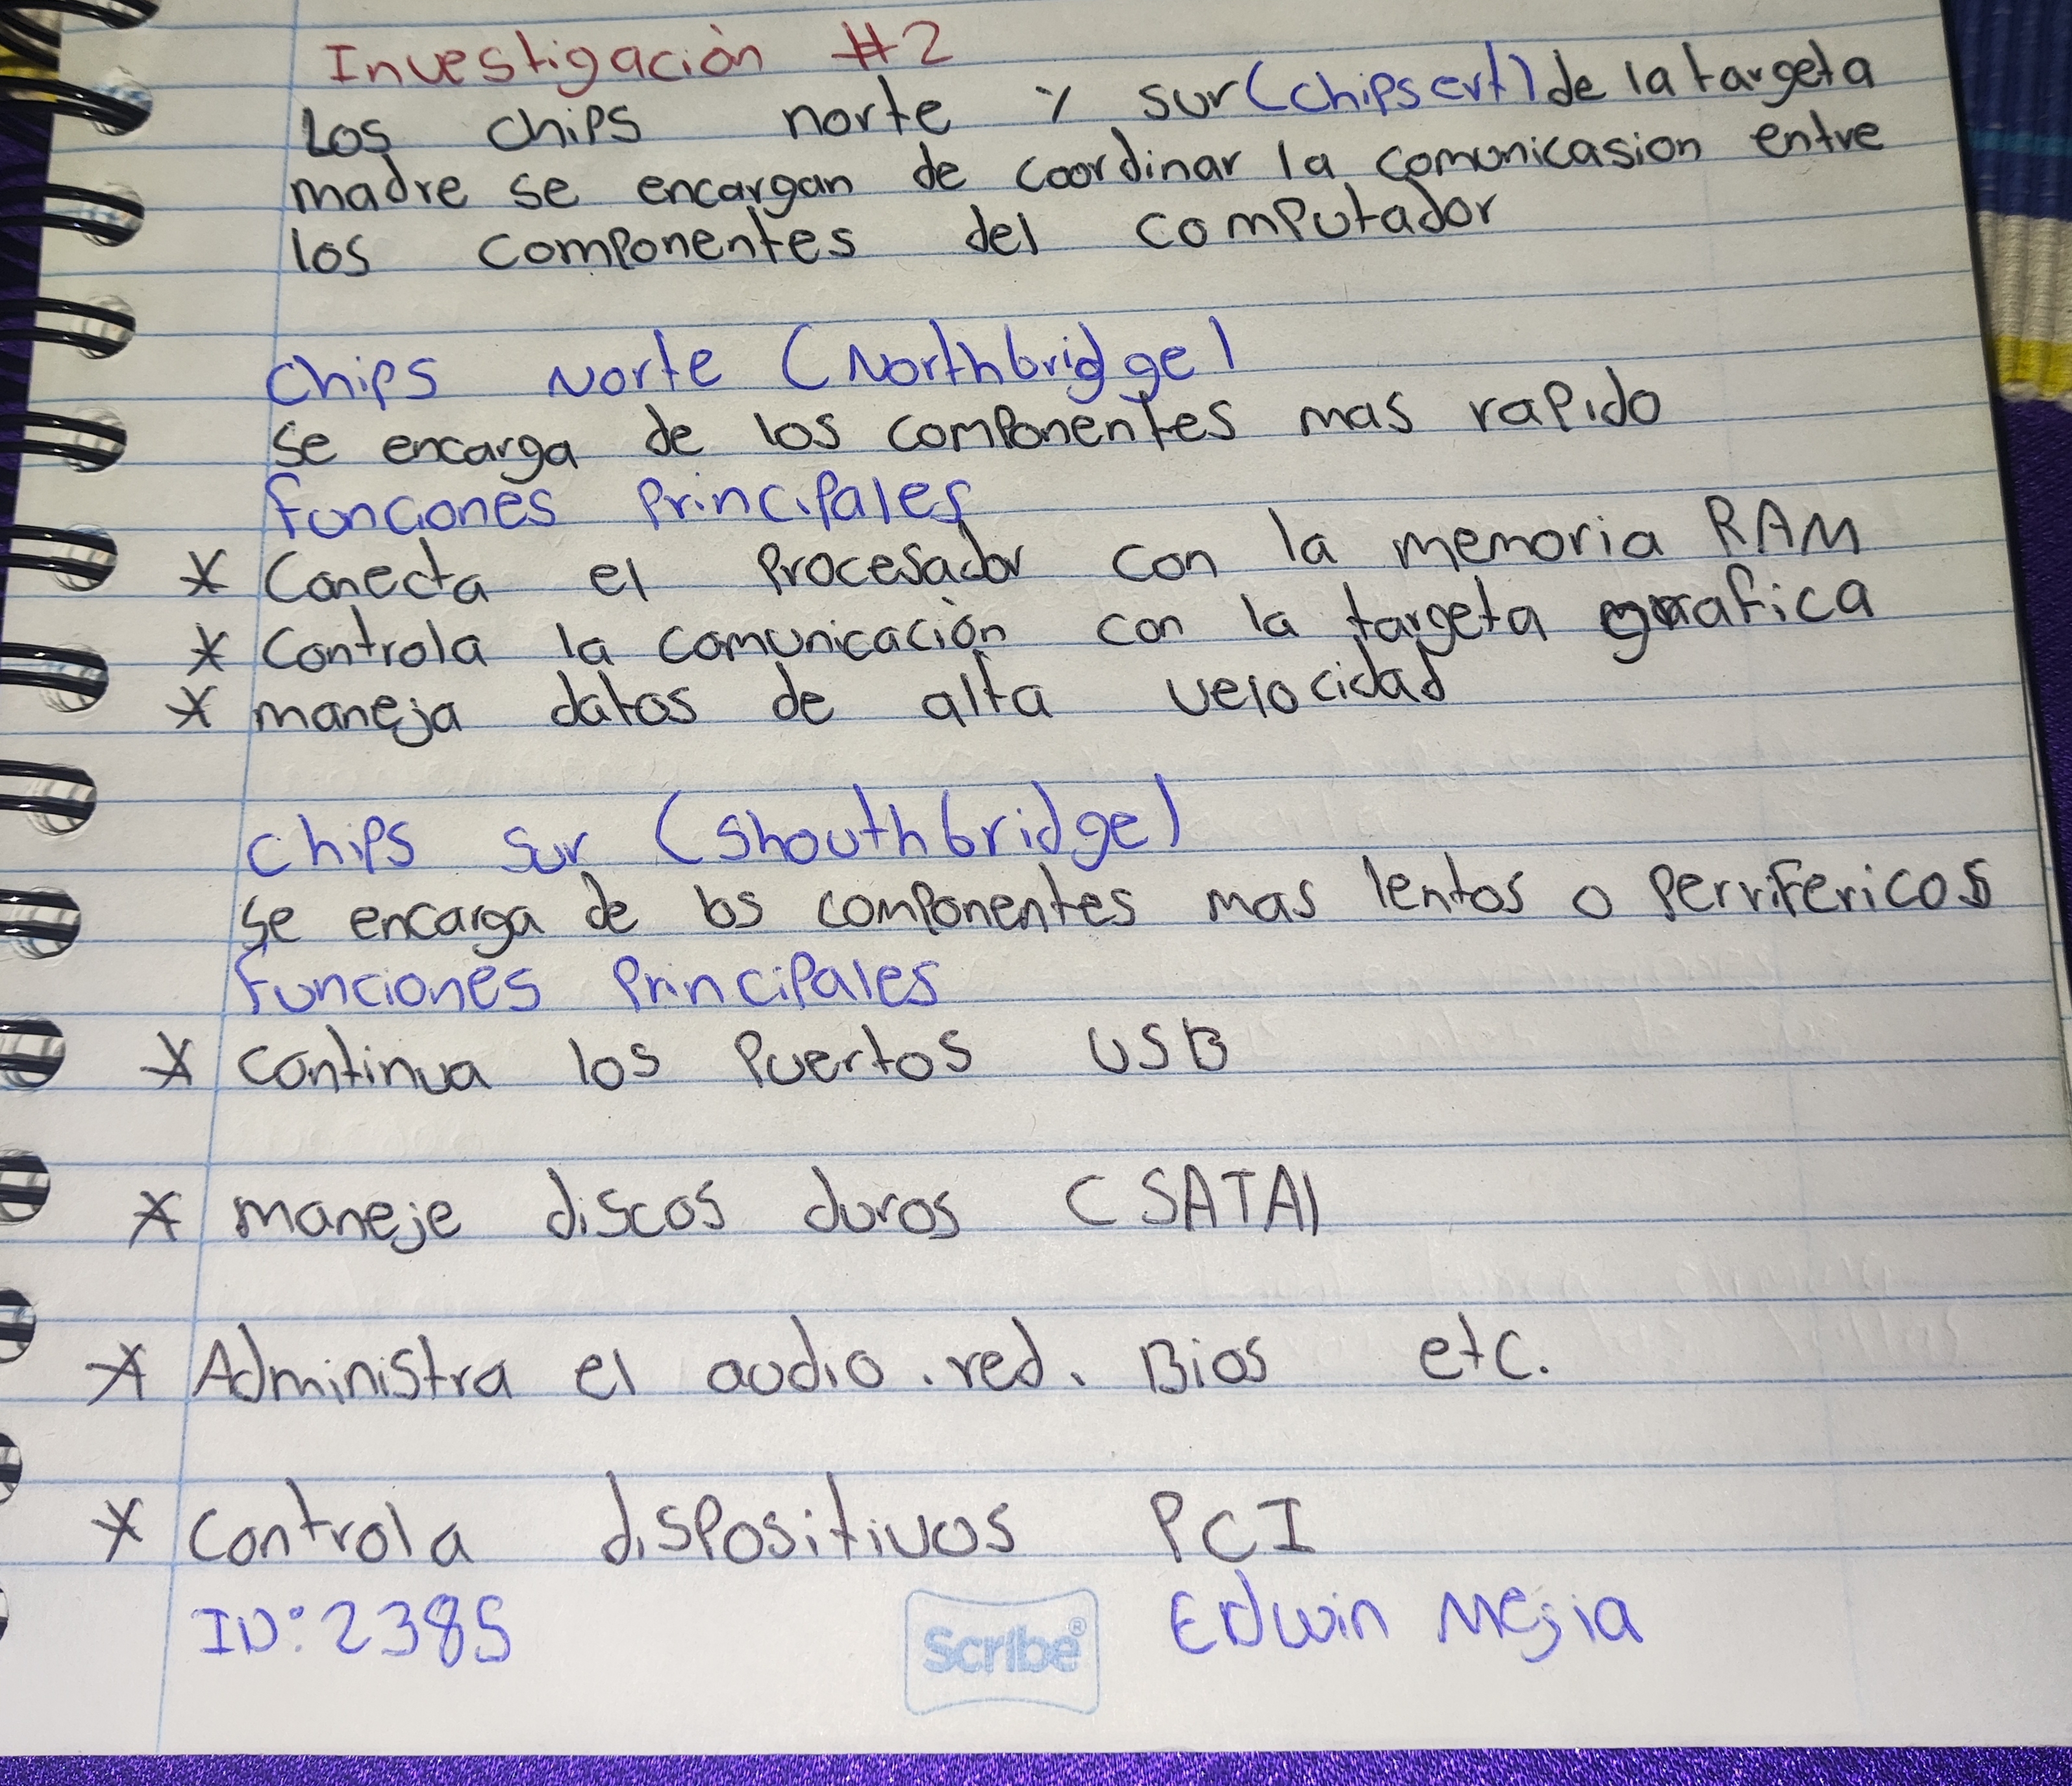 Investigación #2
Los chips norte y sur (chipsert) de la targeta
madre se encargan de coordinar la comonicasion entre
los componentes del computador
Chips Norte (Northbridge)
se encarga de los componentes mas rapido
funciones principales
* Conecta el procesador con la memoria RAM
* Controla la comunicación con la targeta grafica
* maneja datos de alta velocidad
Chips sur (shouthbridge)
se encarga de los componentes mas lentos o perrifericos
funciones principales
* continua los puertos USB
* maneje discos duros (SATA)
* Administra el audio. red. Bios etc.
* Controla dispositivos PCI
ID: 2385 Edwin Mejia
Scribe®